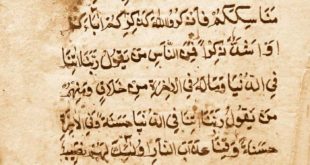 مَنَاسِكَكُمْ فَاذْكُرُوا اللّٰهَ كَذِكْرِكُمْ آبَاءَكُمْ
أَوْ أَشَدَّ ذِكْرًا فَمِنَ النَّاسِ مَنْ يَقُولُ رَبَّنَا آتِنَا
فِي الدُّنْيَا وَمَا لَهُ فِي الْآخِرَةِ مِنْ خَلَاقٍ وَمِنْهُمْ
مَنْ يَقُولُ رَبَّنَا آتِنَا فِي الدُّنْيَا حَسَنَةً وَفِي الْآخِرَةِ
حَسَنَةً وَقِنَا عَذَابَ النَّارِ أُولَٰئِكَ لَهُمْ نَصِيبٌ